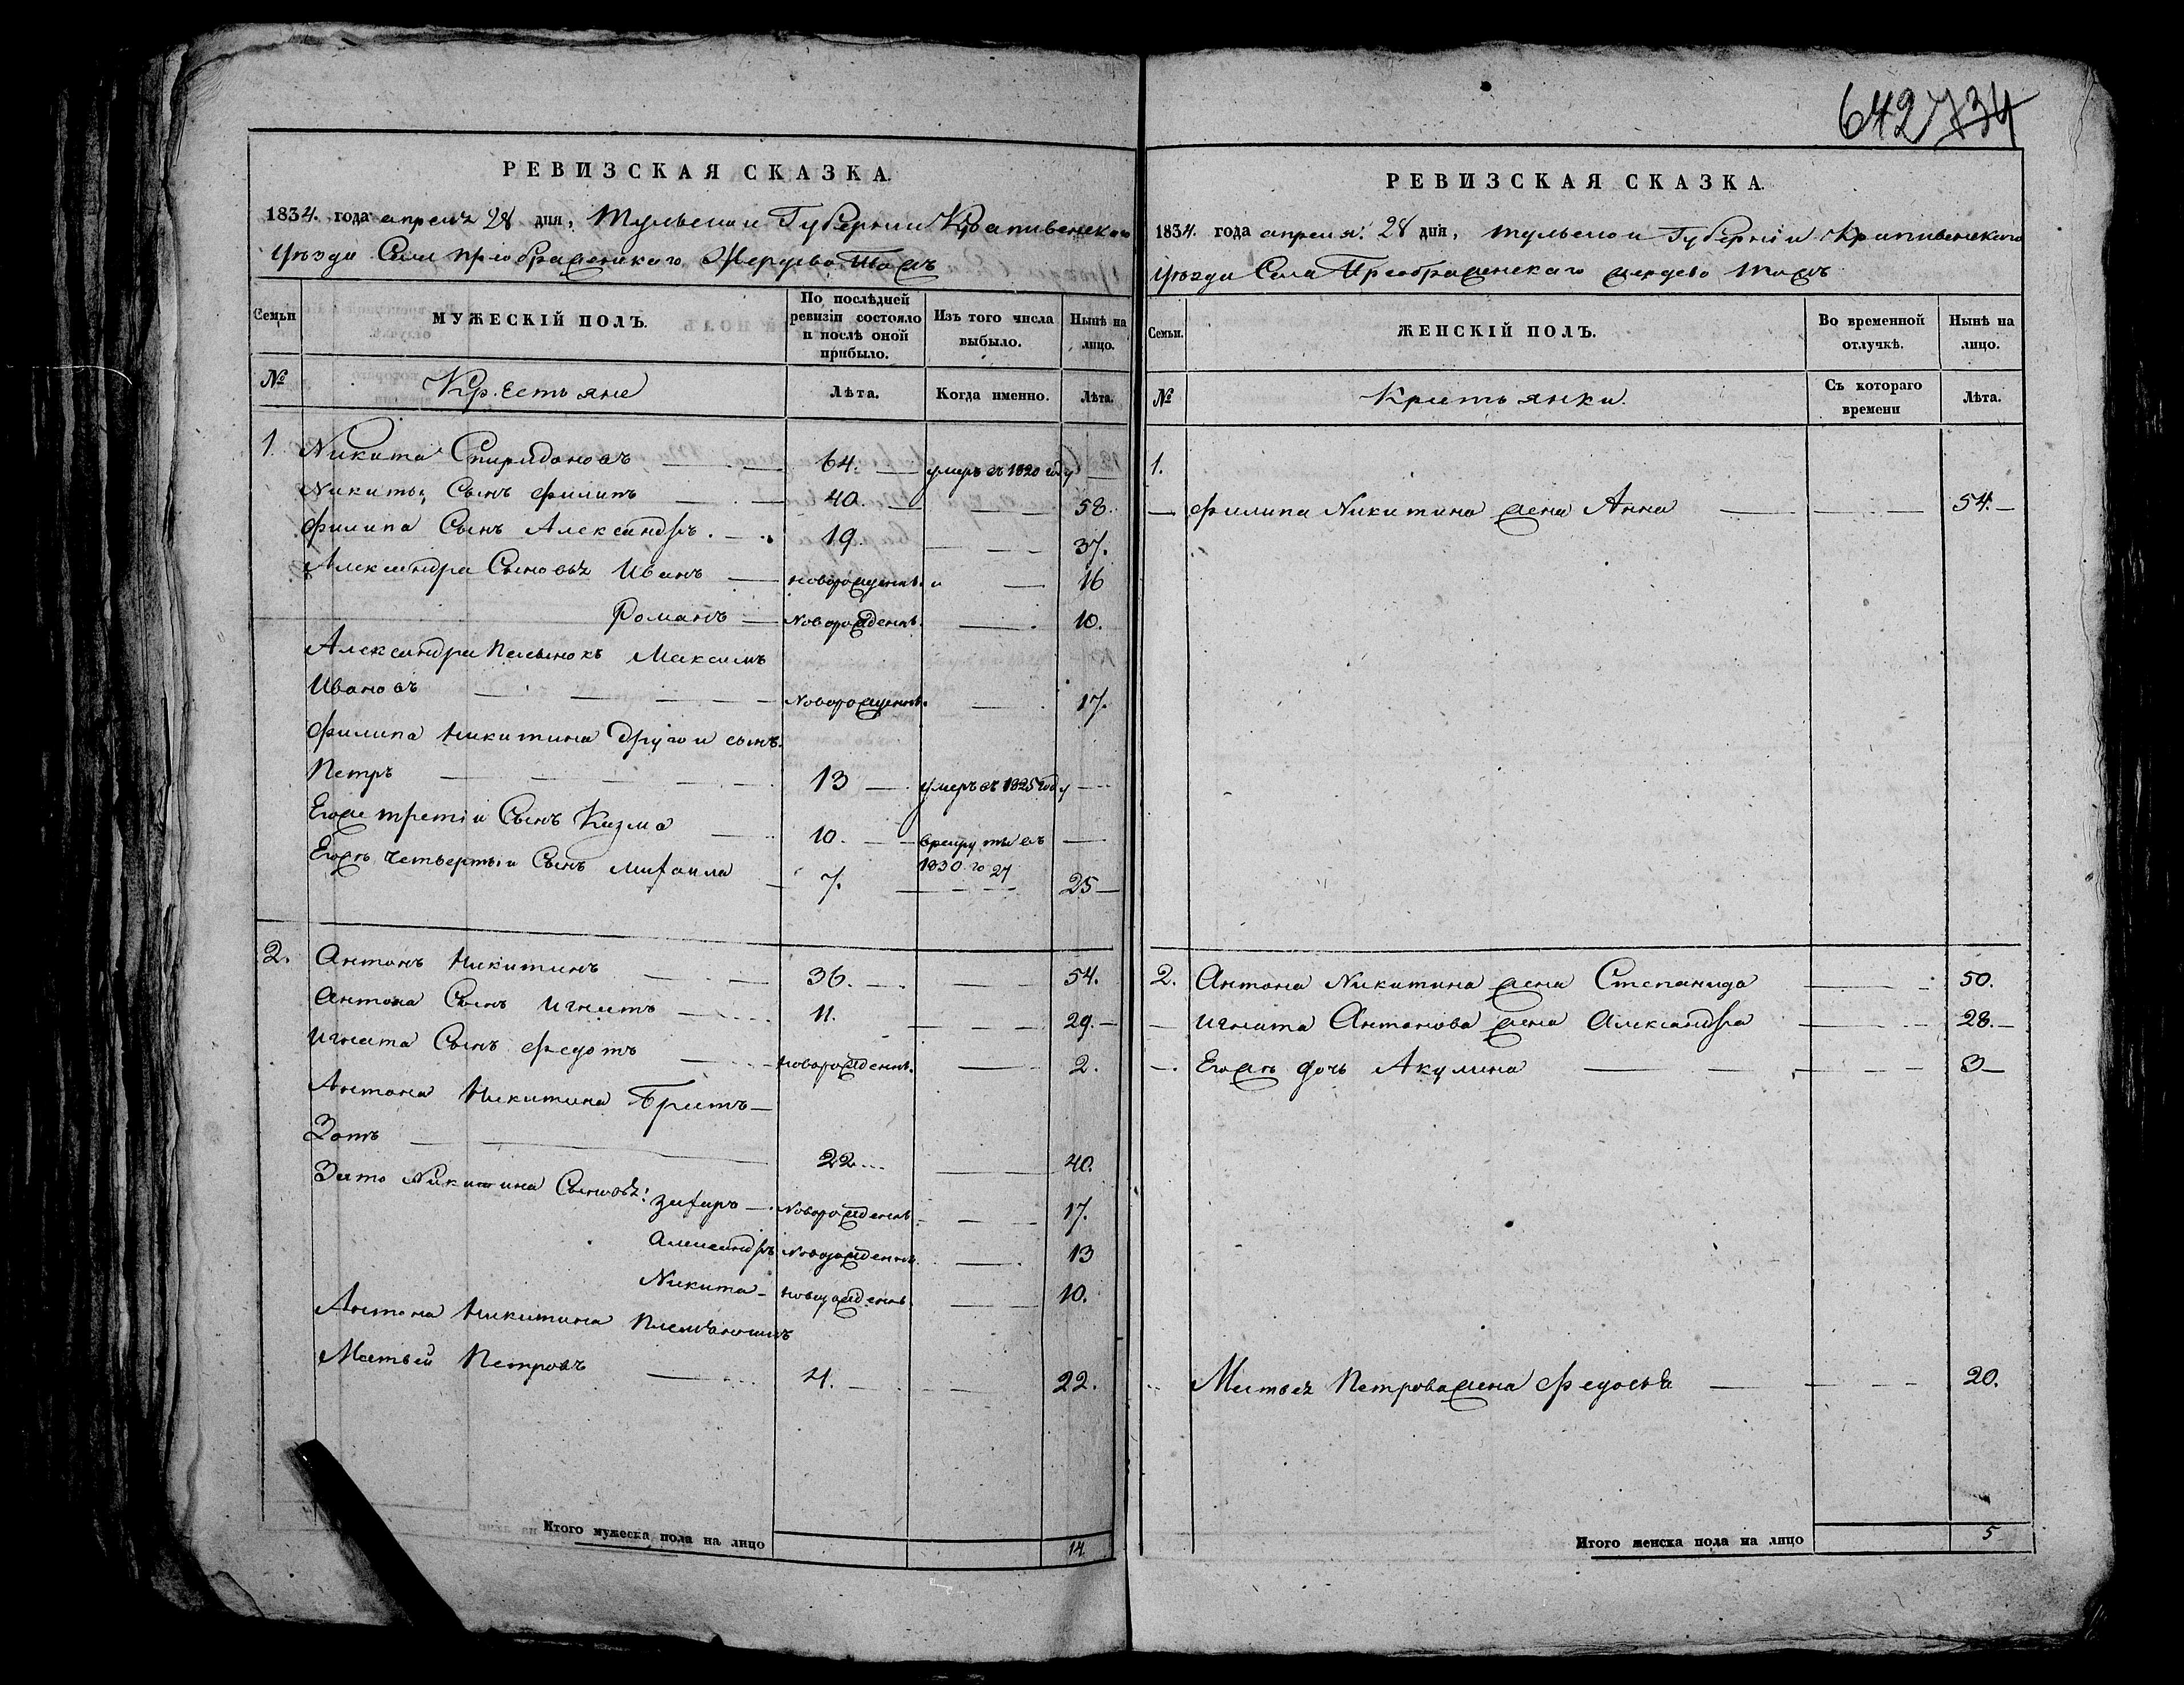 642 734
РЕВИЗСКАЯ СКАЗКА.
1834. года апреля 28 дня, Тульской Губернии Крапивенскаго
Уезда Села Преображенскаго Жердево Тожъ
Семьи
МУЖЕСКІЙ ПОЛЪ.
По послѣдней ревизіи состояло и послѣ оной прибыло.
Изъ того числа выбыло.
Нынѣ на лицо.
№
Крестьяне
Лѣта.
Когда именно.
Лѣта.
1. Никита Спиридоновъ 64. умеръ въ 1820 году
Никиты Сынъ Филипъ 40. 58.
Филипа Сынъ Александръ. 19. 37.
Александра Сыновья Иванъ новорожденъ. 16
Романъ Новорожденъ. 10.
Александра Пасынокъ Максимъ
Ивановъ Новорожденъ. 17.
Филипа Никитина другои сынъ.
Петръ 13 умеръ въ 1825 году
Егоже третіи Сынъ Кузма 10. врекруты въ
1830. году
Егожъ четвертыи Сынъ Михаила 7. 25
2. Антонъ Никитинъ 36. 54.
Антона Сынъ Игнатъ 11. 29.
Игната Сынъ Федотъ новорожденъ. 2.
Антона Никитина Братъ
Зотъ 22 40.
Зота Никитина Сыновья: Захаръ Новорожденъ. 17.
Александръ Новорожденъ. 13
Никита новорожденъ. 10.
Антона Никитина Племянникъ
Матвей Петровъ 4. 22.
Итого мужеска пола на лицо 14.
РЕВИЗСКАЯ СКАЗКА.
1834. года апреля. 28 дня, Тульской Губерніи Крапивенскаго
Уезда Села Преображенскаго жердево Тожъ
Семьи.
ЖЕНСКІЙ ПОЛЪ.
Во временной отлучкѣ.
Нынѣ на лицо.
№
Крестьянки.
Съ котораго времени
Лѣта.
1.
Филипа Никитина жена Анна 54.
2. Антона Никитина жена Степанида 50.
Игната Антонова жена Александра 28.
Егожъ дочь Акулина 3
Матвея Петрова жена Федосья 20.
Итого женска пола на лицо 5